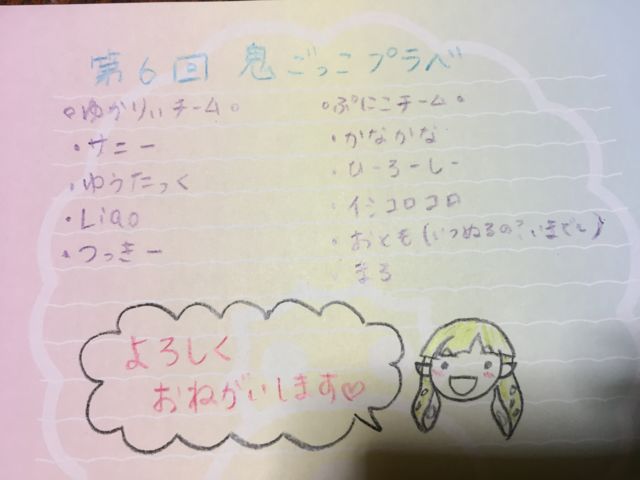 第6回 鬼ごっこプラベ
ゆかりぃチーム
・サニー
・ゆうたっく
・Liao
・つっきー
ぷにこチーム
・かなかな
・ひーろーしー
・イシコロコロ
・おとも(いつぬるの?いまでし)
・まろ
よろしく
おねがいします♡